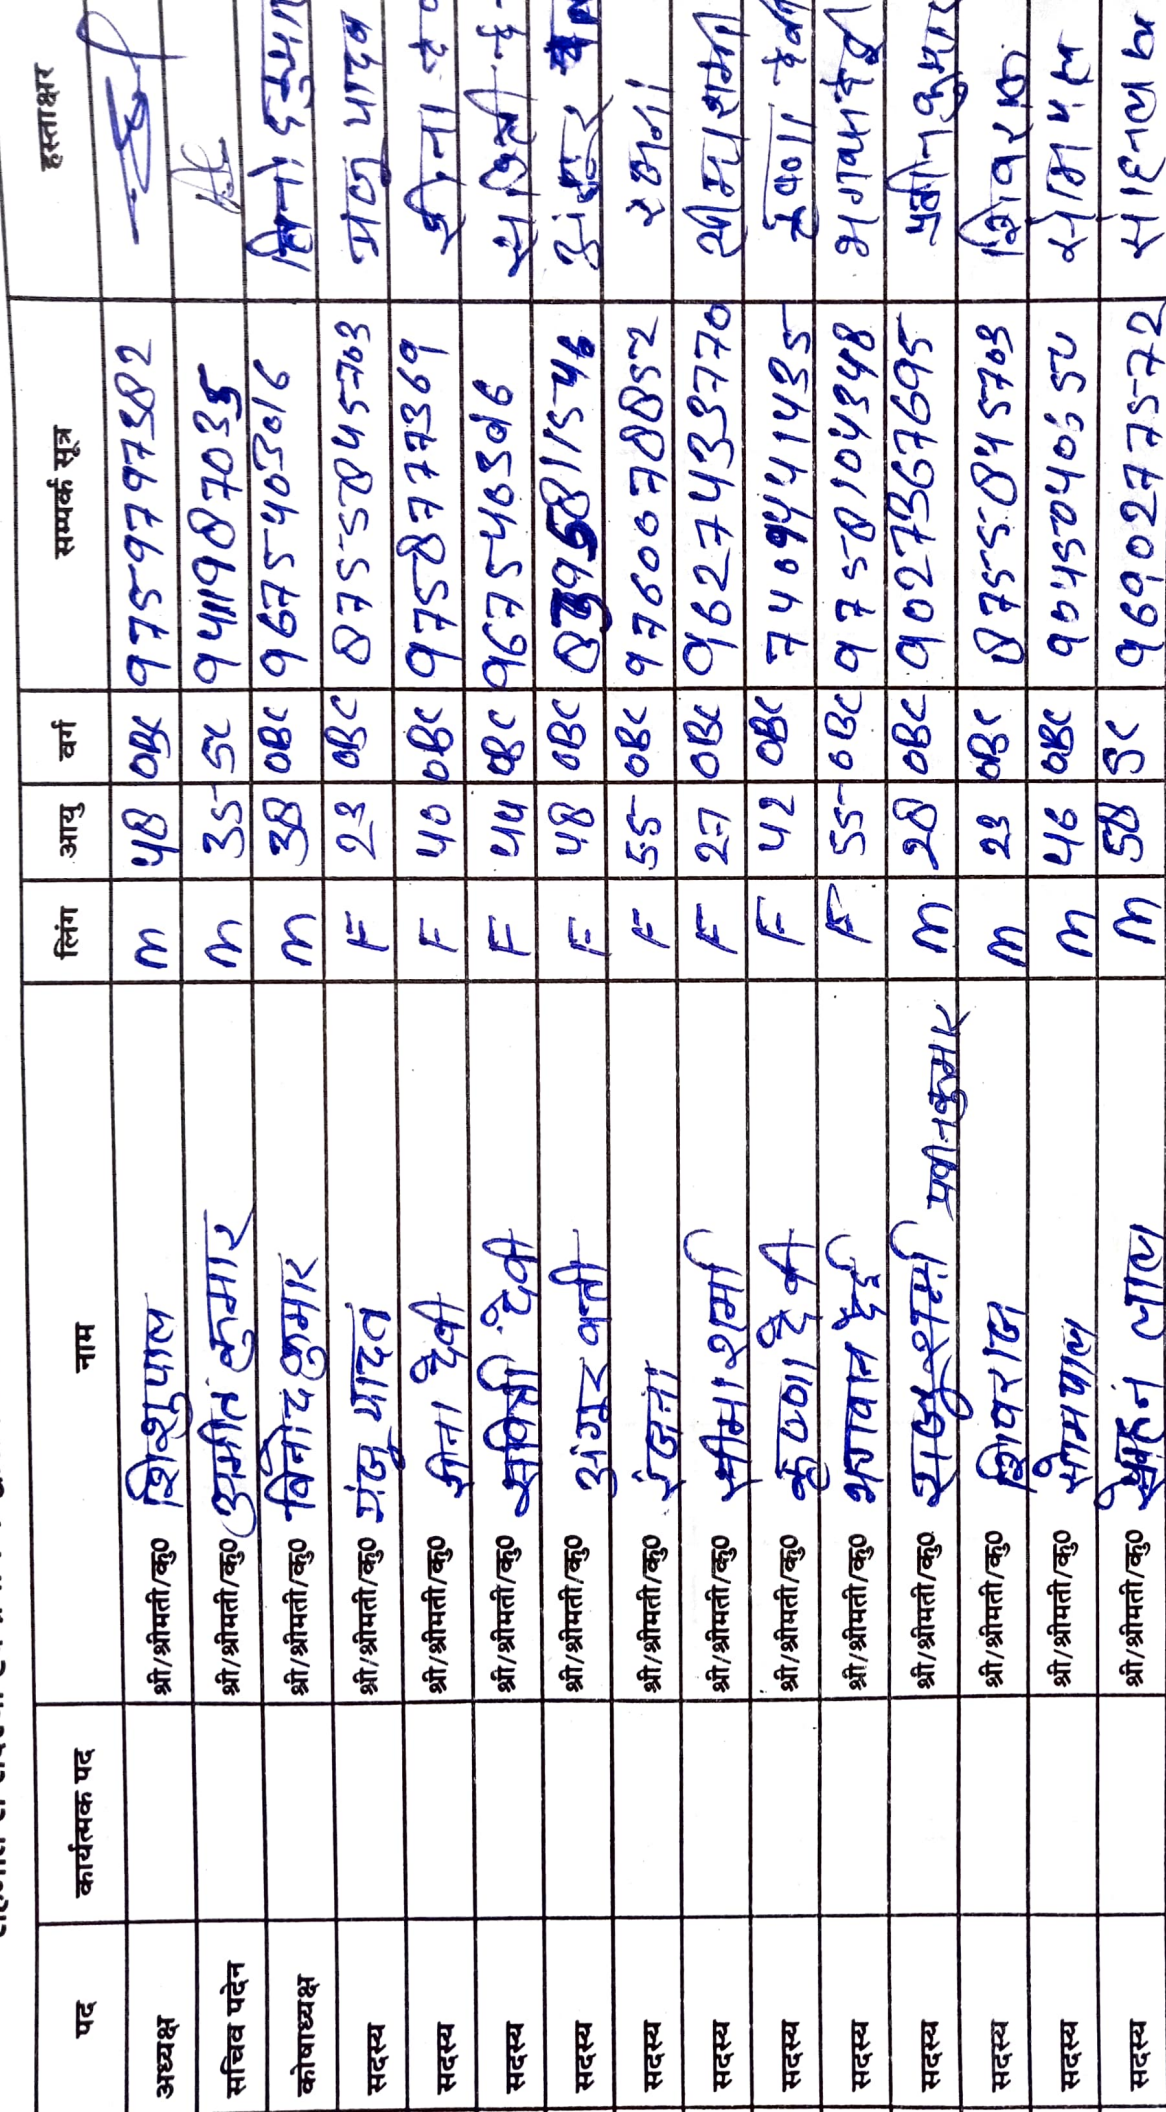 पद कार्यात्मक पद नाम लिंग आयु वर्ग सम्पर्क सूत्र हस्ताक्षर
अध्यक्ष श्री/श्रीमती/कु0 शिशुपाल M 48 OBC 9759797382
सचिव पदेन श्री/श्रीमती/कु0 अमीत कुमार M 35 SC 9411987035
कोषाध्यक्ष श्री/श्रीमती/कु0 विनोद कुमार M 38 OBC 9675405016
सदस्य श्री/श्रीमती/कु0 मंजू यादव F 23 OBC 8755845703 मंजू यादव
सदस्य श्री/श्रीमती/कु0 मीना देवी F 40 OBC 9758777369 मीना दे
सदस्य श्री/श्रीमती/कु0 सावित्री देवी F 44 OBC 9675405016 सावित्री दे
सदस्य श्री/श्रीमती/कु0 अंगूर वती F 48 OBC अंगूर
सदस्य श्री/श्रीमती/कु0 रंजना F 55 OBC 9760078852
सदस्य श्री/श्रीमती/कु0 सीमा शर्मा F 27 OBC 9627433770 सीमा शर्मा
सदस्य श्री/श्रीमती/कु0 कृष्णा देवी F 42 OBC 7409441435
सदस्य श्री/श्रीमती/कु0 भगवान देई F 55 OBC 9758104348
सदस्य श्री/श्रीमती/कु0 राजू शर्मा प्रवीन कुमार M 28 OBC 9027367695 प्रवीन कुमार
सदस्य श्री/श्रीमती/कु0 शिवराज M 23 OBC 8755845703 शिवराज
सदस्य श्री/श्रीमती/कु0 सोमपाल M 46 OBC सोमपाल
सदस्य श्री/श्रीमती/कु0 सोहन लाल M 58 SC 9690277572 सोहनलाल